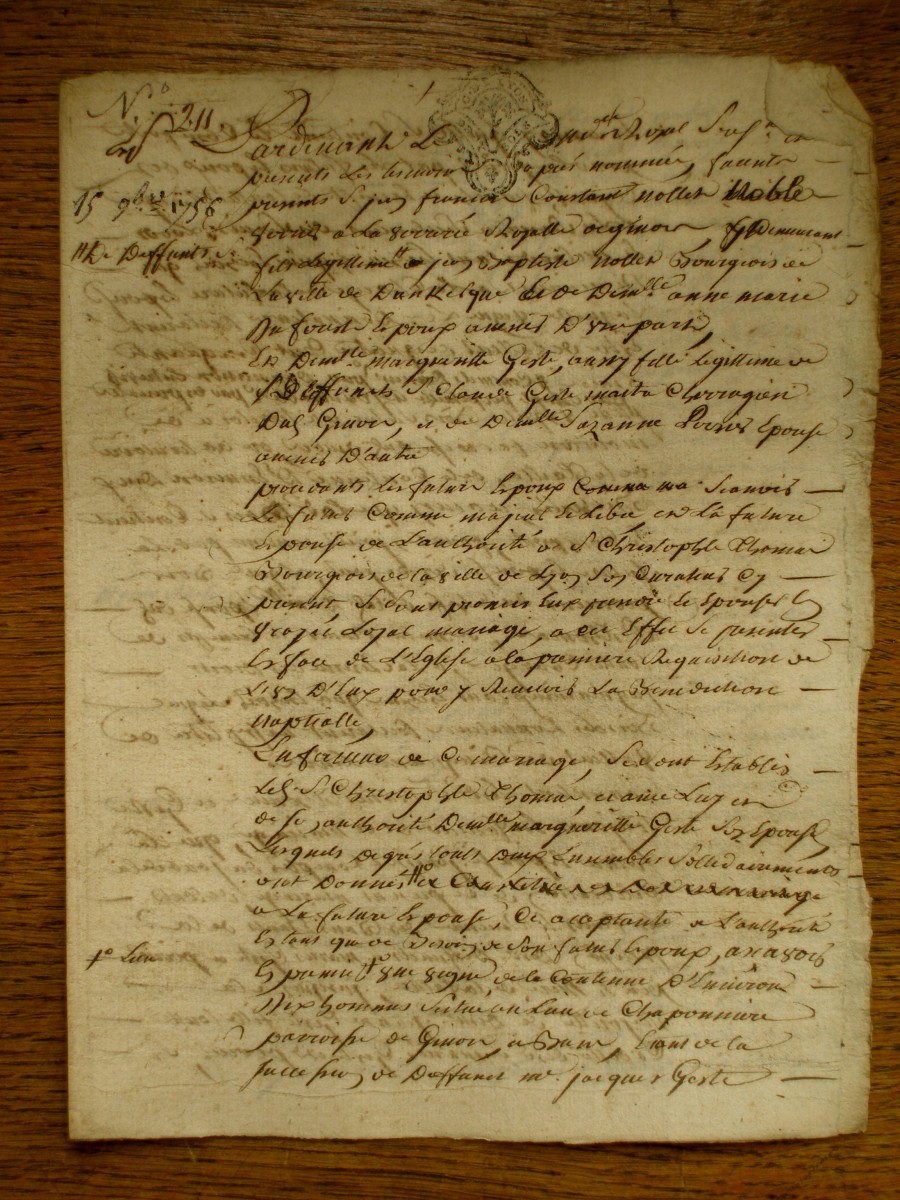 N.o 211
Pardevant Le nore Royal Sousn. et
presents Les temoins cy apres nommés, furent
15 9bre 1756
presents Sr jean francois Constant nollet Noble
verrier a La verrerie Royalle de givors, y Demeurant
De Deffunts
fils Legitime de jean Baptiste nollet Bourgeois de
La ville de Dunkerque et de Demlle anne marie
Du Epoux avenir D'une part,
Et Demlle marguerite Geste, aussy fille Legitime de
Deffunts Sr Claude Geste maitre Chirurgien
Dud. Givors, et de Demlle Suzanne Epouse
avenir D'autre
procedants Les futurs Epoux Comme Scavoir
Le futur Comme majeur et Libre et La future
Epouse de L'authorité de Sr Christophle Thomas
Bourgeois de La ville de Lyon Son Curateur Cy
present, Se Sont promis Eux prendre et Epouser En
vray et Loyal mariage, a cet Effet Se presenter
En face de L'Eglise a la premiere Requisition de
L'un D'Eux pour y Recevoir La Benediction
nuptialle,
En faveur de Ce mariage, Se Sont Etablis
Led. Sr Christophle Thomas, et avec Luy et
de Son authorité Demlle marguerite Geste Son Epouse,
Lesquels De gré tous Deux Ensembles Sollidairement
ont Donnés et Constitué
a La future Epouse, Ce acceptante de L'authorité
En tant que de Besoin de Son futur Epoux, ascavoir
1o Lieu
En premier une vigne de la Contenue D'Environ
Dix hommes Située au Lieu de Chaponniere
parroisse de Givors, Etant de la
succession de Deffunt me. jacques Geste